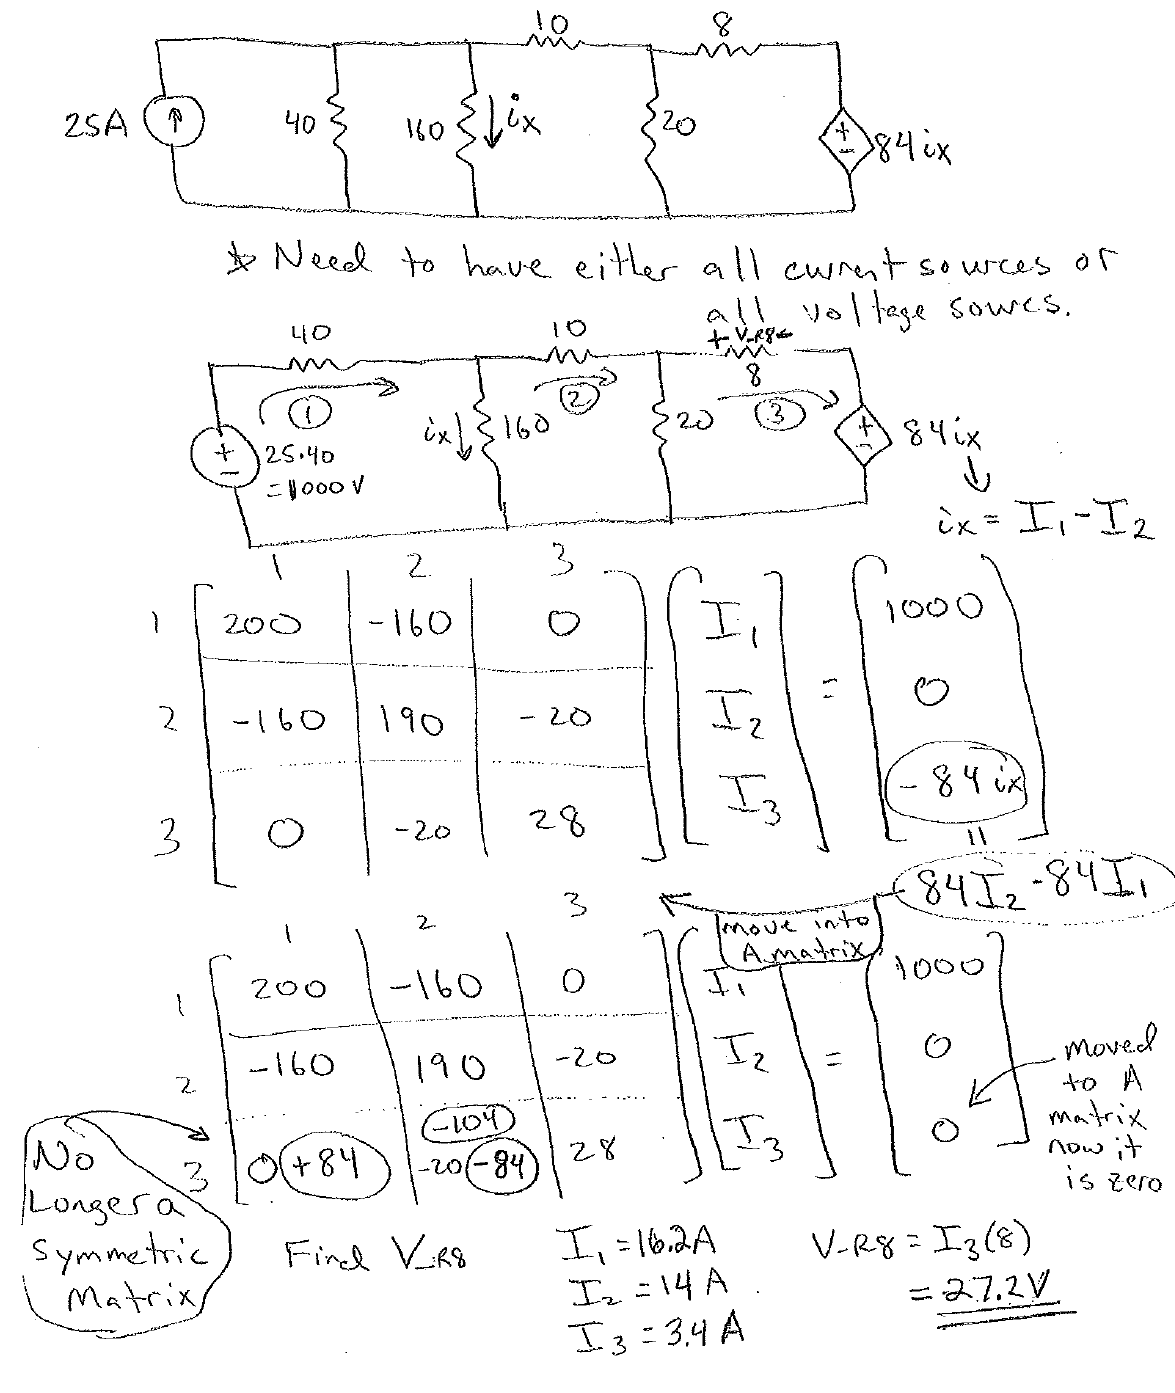 10 8
25A 40 160 ix 20 + - 84ix
* Need to have either all current sources or
all voltage sources.
40 10 + V-R8 -
8
1 2 3
+ - 25·40 ix 160 20 + - 84ix
=1000V
ix = I1-I2
1 2 3
1 200 -160 0 I1 1000
2 -160 190 -20 I2 = 0
3 0 -20 28 I3 -84ix
=
84I2-84I1
move into
A matrix
1 2 3
1 200 -160 0 I1 1000
2 -160 190 -20 I2 = 0
-104
3 0+84 -20-84 28 I3 0
moved
to A
matrix
now it
is zero
No
Longer a
Symmetric
Matrix
Find V-R8
I1 = 16.2A
I2 = 14A
I3 = 3.4A
V-R8 = I3(8)
= 27.2V